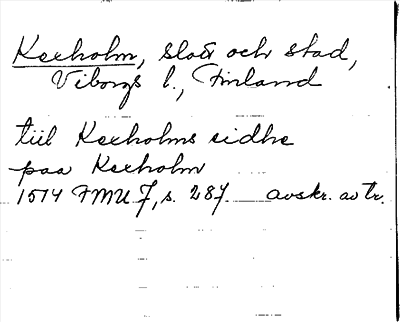 Kexholm, slott och stad,
Viborgs l., Finland
till Kexholms sidhe
paa Kexholm
1514 FMU 7, s. 287. avskr. av tr.